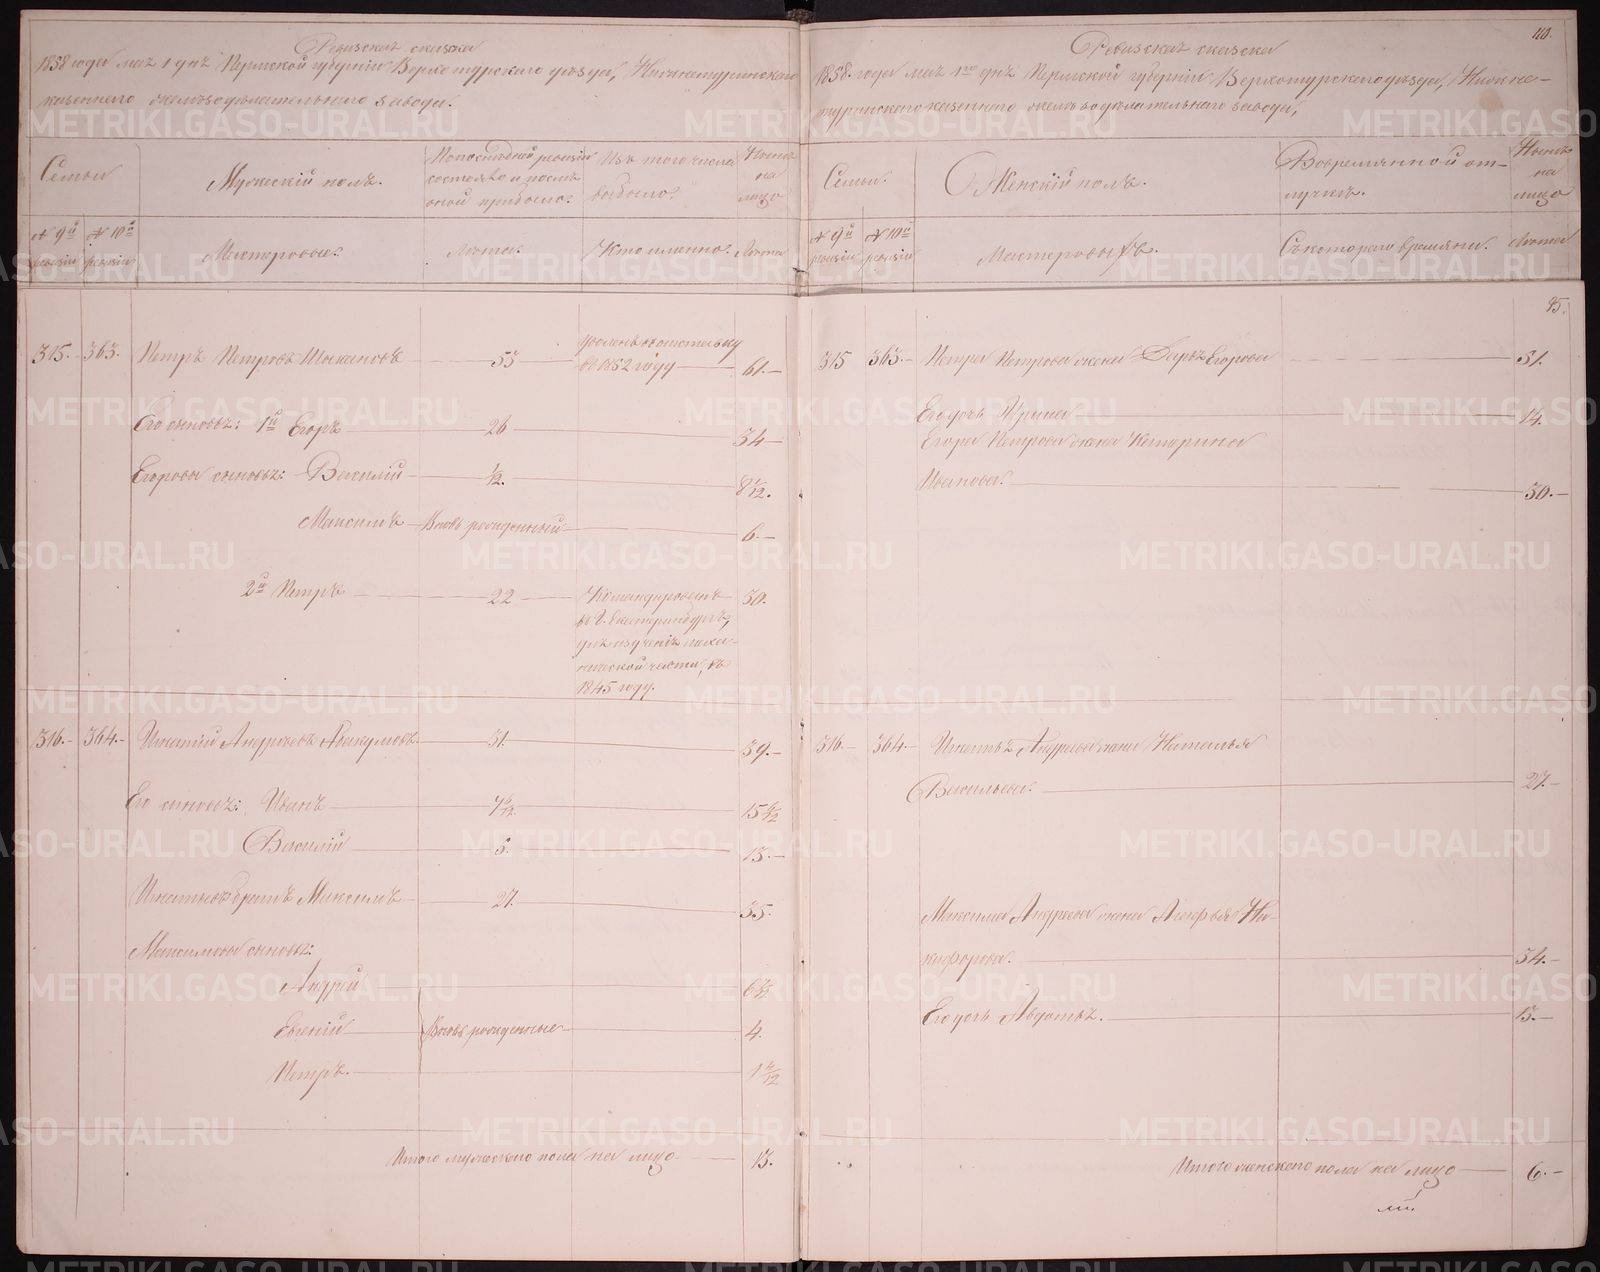 Ревизская сказка
1858 года мая 1 дня Пермской губернии Верхотурского уезда, Нижнетуринского
казенного железоделательного завода.
Семьи
Мужеский полъ.
По последней ревизіи
состояло и после
оной прибыло.
Изъ того числа
выбыло.
Ныне
на
лицо
№ 9й
ревизіи
№ 10й
ревизіи
Мастеровые.
Лета.
Кто именно.
Лета
315. 363. Петръ Петровъ 53 уволенъ въ отставку
въ 1852 году 61.
Его сыновья: 1й Егоръ 26 34
Егоровы сыновья: Василій 1/2. 8 1/2.
Максимъ Вновь рожденный 6.
2й Петръ 22 Командированъ 30.
въ г. Екатеринбургъ,
для изученія меха-
нической части, въ
1845 году.
316. 364. Игнатій Андреевъ Абакумовъ 31. 39.
Его сыновья: Иванъ 15
Василій 5. 13.
Игнатьевъ братъ Максимъ 27. 35.
Максимовы сыновья:
Андрей 6 1/2
Евгеній Вновь рожденные 4.
Петръ.
Итого мужескаго пола на лицо 13.
Ревизская сказка
1858 года мая 1го дня Пермской губерніи Верхотурского уезда, Нижне-
туринского казенного железоделательного завода,
Семьи.
Женскій полъ.
Во временной от-
лучке.
Ныне
на
лицо
№ 9й
ревизіи
№ 10й
ревизіи
Мастеровыхъ.
Съ котораго времяни.
Лета
95.
315 363. Петра Петрова жена Дарья Егорова 51.
Его дочь Ирина 14.
Егора Петрова жена Катерина
Иванова. 30.
316. 364. Игнатья Андреева жена Наталья
Васильева. 27.
Максима Андреева жена Агафья Ни-
кифорова. 34.
Его дочь Авдотья. 15.
Итого женскаго пола на лицо 6.
METRIKI.GASO-URAL.RU